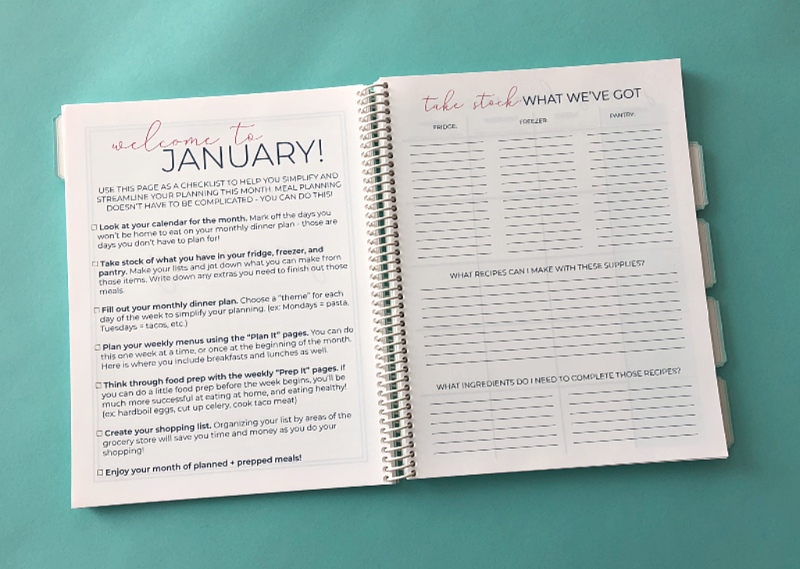 welcome to
JANUARY!
USE THIS PAGE AS A CHECKLIST TO HELP YOU SIMPLIFY AND
STREAMLINE YOUR PLANNING THIS MONTH. MEAL PLANNING
DOESN'T HAVE TO BE COMPLICATED - YOU CAN DO THIS!
Look at your calendar for the month. Mark off the days you
won't be home to eat on your monthly dinner plan - those are
days you don't have to plan for!
Take stock of what you have in your fridge, freezer, and
pantry. Make your lists and jot down what you can make from
those items. Write down any extras you need to finish out those
meals.
Fill out your monthly dinner plan. Choose a "theme" for each
day of the week to simplify your planning. (ex: Mondays = pasta,
Tuesdays = tacos, etc.)
Plan your weekly menus using the "Plan It" pages. You can do
this one week at a time, or once at the beginning of the month.
Here is where you include breakfasts and lunches as well.
Think through food prep with the weekly "Prep It" pages. If
you can do a little food prep before the week begins, you'll be
much more successful at eating at home, and eating healthy!
(ex: hardboil eggs, cut up celery, cook taco meat)
Create your shopping list. Organizing your list by areas of the
grocery store will save you time and money as you do your
shopping!
Enjoy your month of planned + prepped meals!
take stock WHAT WE'VE GOT
FRIDGE: FREEZER: PANTRY:
WHAT RECIPES CAN I MAKE WITH THESE SUPPLIES?
WHAT INGREDIENTS DO I NEED TO COMPLETE THOSE RECIPES?